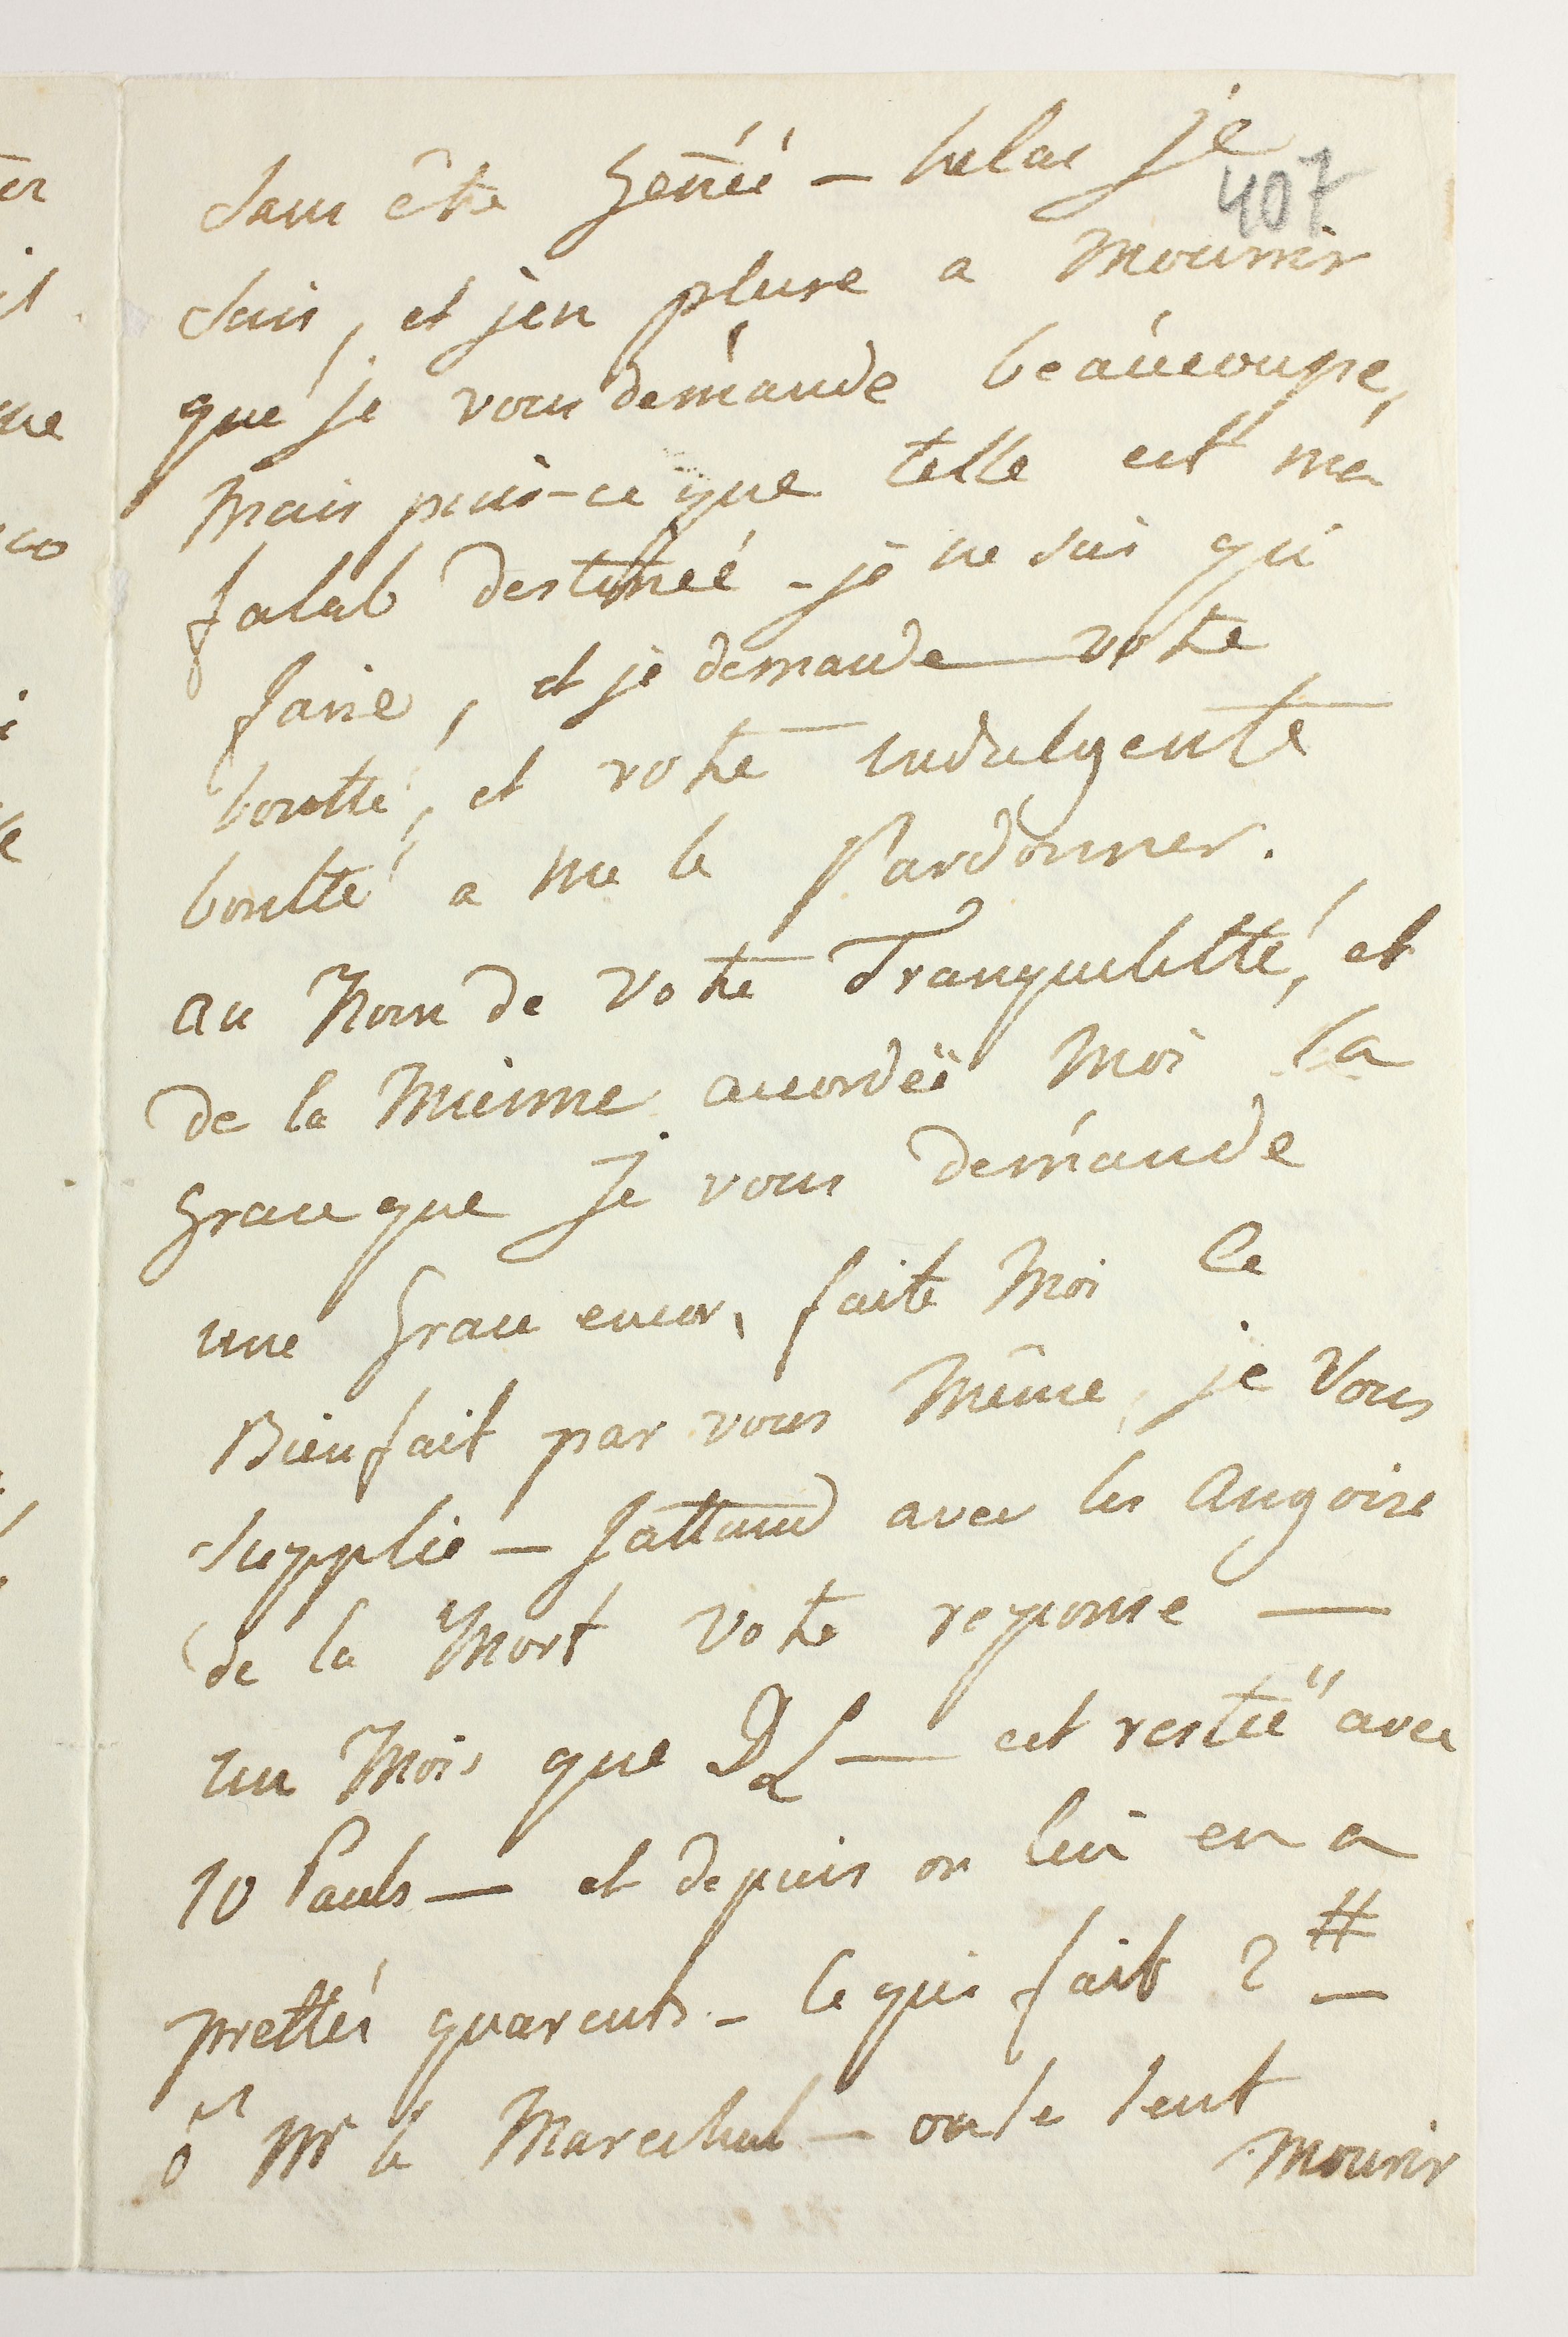 407
Sans être Génée – helas je
Sais, et jen plure a Mourrir
que je vous demande beaucoupe,
Mais puis-ce que telle est ma
fatale destinée – je ne sais qu
faire, et je demande votre
bontté, et votre indulgente
bontté a me le Pardonner.
au Nom de Votre Tranquilitté, et
de la Mienne accordéé Moi la
Grace que Je vous demande
une Grace encor, faite Moi Ce
Bienfait par vous Même, je Vous
Supplie – Jattand avec les Angoise
de la Mort Votre reponse —
un Mois que DL — est restée avec
10 Pauls — et depuis on lui en a
prettés quarente – Ce qui fait 2 #
ô Mr le Marechal – on se sent
Mourir